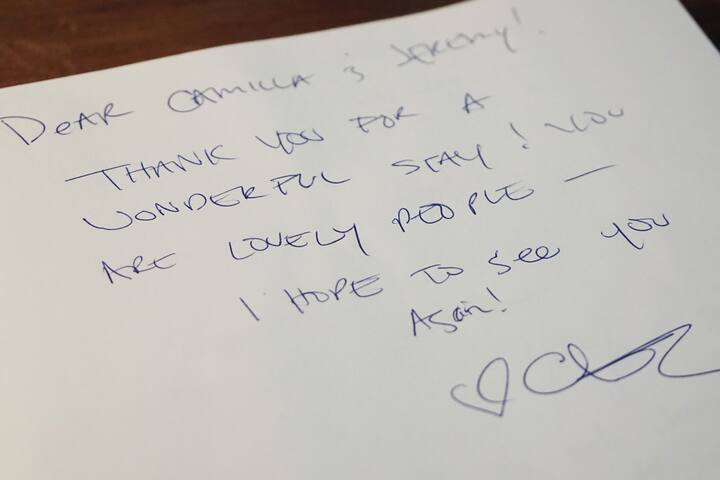 DEAR CAMILLA & JEREMY!
THANK YOU FOR A
WONDERFUL STAY! YOU
ARE LOVELY PEOPLE —
I HOPE TO see you
Again!
♡